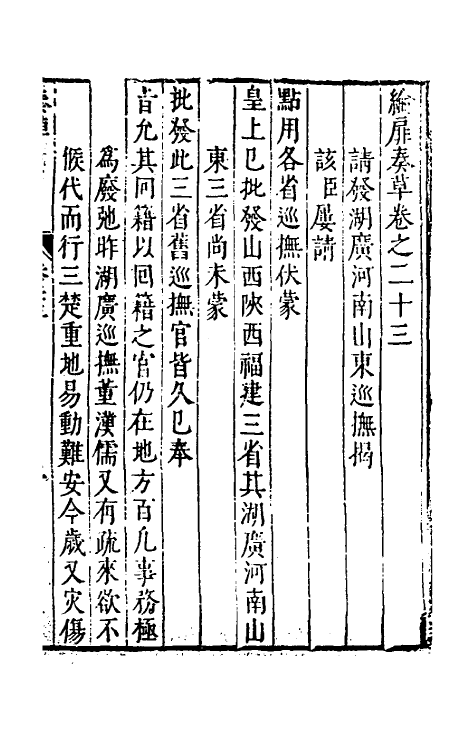 綸扉奏草卷之二十三
請發湖廣河南山東巡撫揭
該臣屢請
點用各省巡撫伏蒙
皇上已批發山西陝西福建三省其湖廣河南山
東三省尚未蒙
批發此三省舊巡撫官皆久已奉
旨允其囘籍以囘籍之官仍在地方百凡事務極
爲廢弛昨湖廣巡撫董漢儒又有疏來欲不
候代而行三楚重地易動難安今歲又灾傷